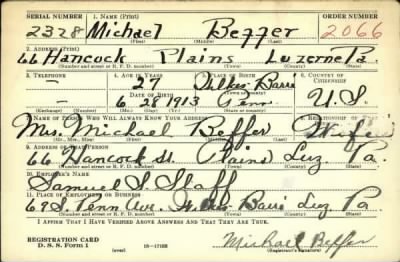 SERIAL NUMBER 1. NAME (Print) ORDER NUMBER
2328 Michael Beffer 2066
(First) (Middle) (Last)
2. ADDRESS (Print)
66 Hancock Plains Luzerne Pa.
(Number and street or R. F. D. number) (Town) (County) (State)
3. TELEPHONE 4. AGE IN YEARS 5. PLACE OF BIRTH 6. COUNTRY OF CITIZENSHIP
— 27 Wilkes Barre
DATE OF BIRTH
— 6 28 1913 Penn. U.S.
(Exchange) (Number) (Mo.) (Day) (Yr.) (State or country)
7. NAME OF PERSON WHO WILL ALWAYS KNOW YOUR ADDRESS 8. RELATIONSHIP OF THAT PERSON
Mrs. Michael Beffer Wife
(Mr., Mrs., Miss) (First) (Middle) (Last)
9. ADDRESS OF THAT PERSON
66 Hancock St. Plains Luz. Pa.
(Number and street or R. F. D. number) (Town) (County) (State)
10. EMPLOYER'S NAME
Samuel S.
11. PLACE OF EMPLOYMENT OR BUSINESS
69 S. Penn Ave. Wilkes Barre Luz. Pa.
(Number and street or R. F. D. number) (Town) (County) (State)
I AFFIRM THAT I HAVE VERIFIED ABOVE ANSWERS AND THAT THEY ARE TRUE.
REGISTRATION CARD
D. S. S. Form 1 (over) Michael Beffer
(Registrant's signature)